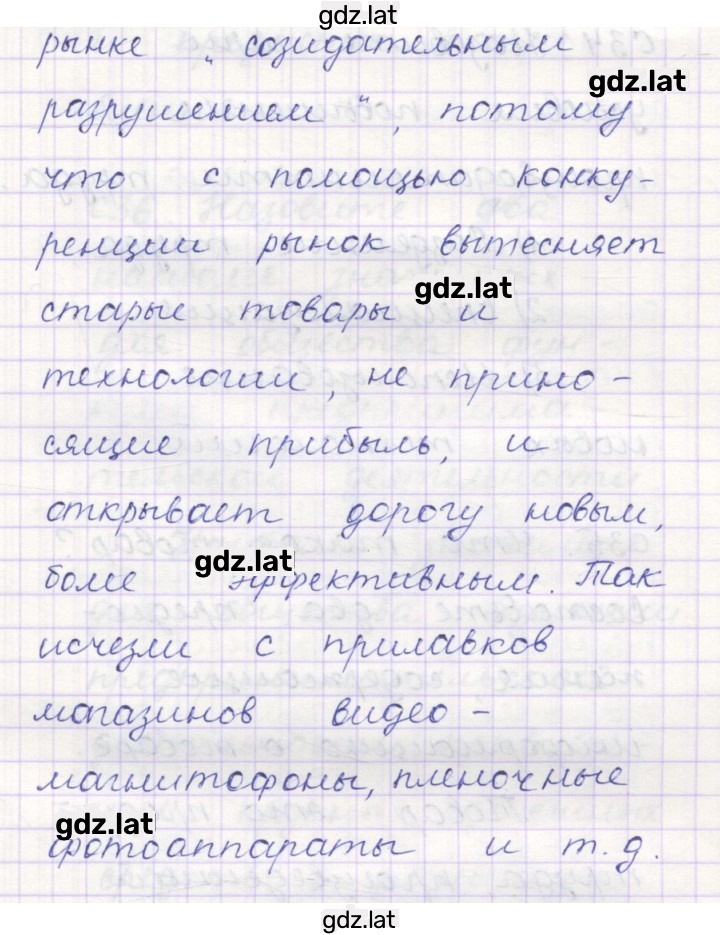 gdz.lat
рынке „созидательным
gdz.lat
разрушением“, потому
что с помощью конку-
ренции рынок вытесняет
gdz.lat
старые товары и
технологии, не прино-
сящие прибыль, и
открывает дорогу новым,
gdz.lat
более эффективным. Так
исчезли с прилавков
магазинов видео-
магнитофоны, пленочные
gdz.lat
фотоаппараты и т.д.
gdz.lat